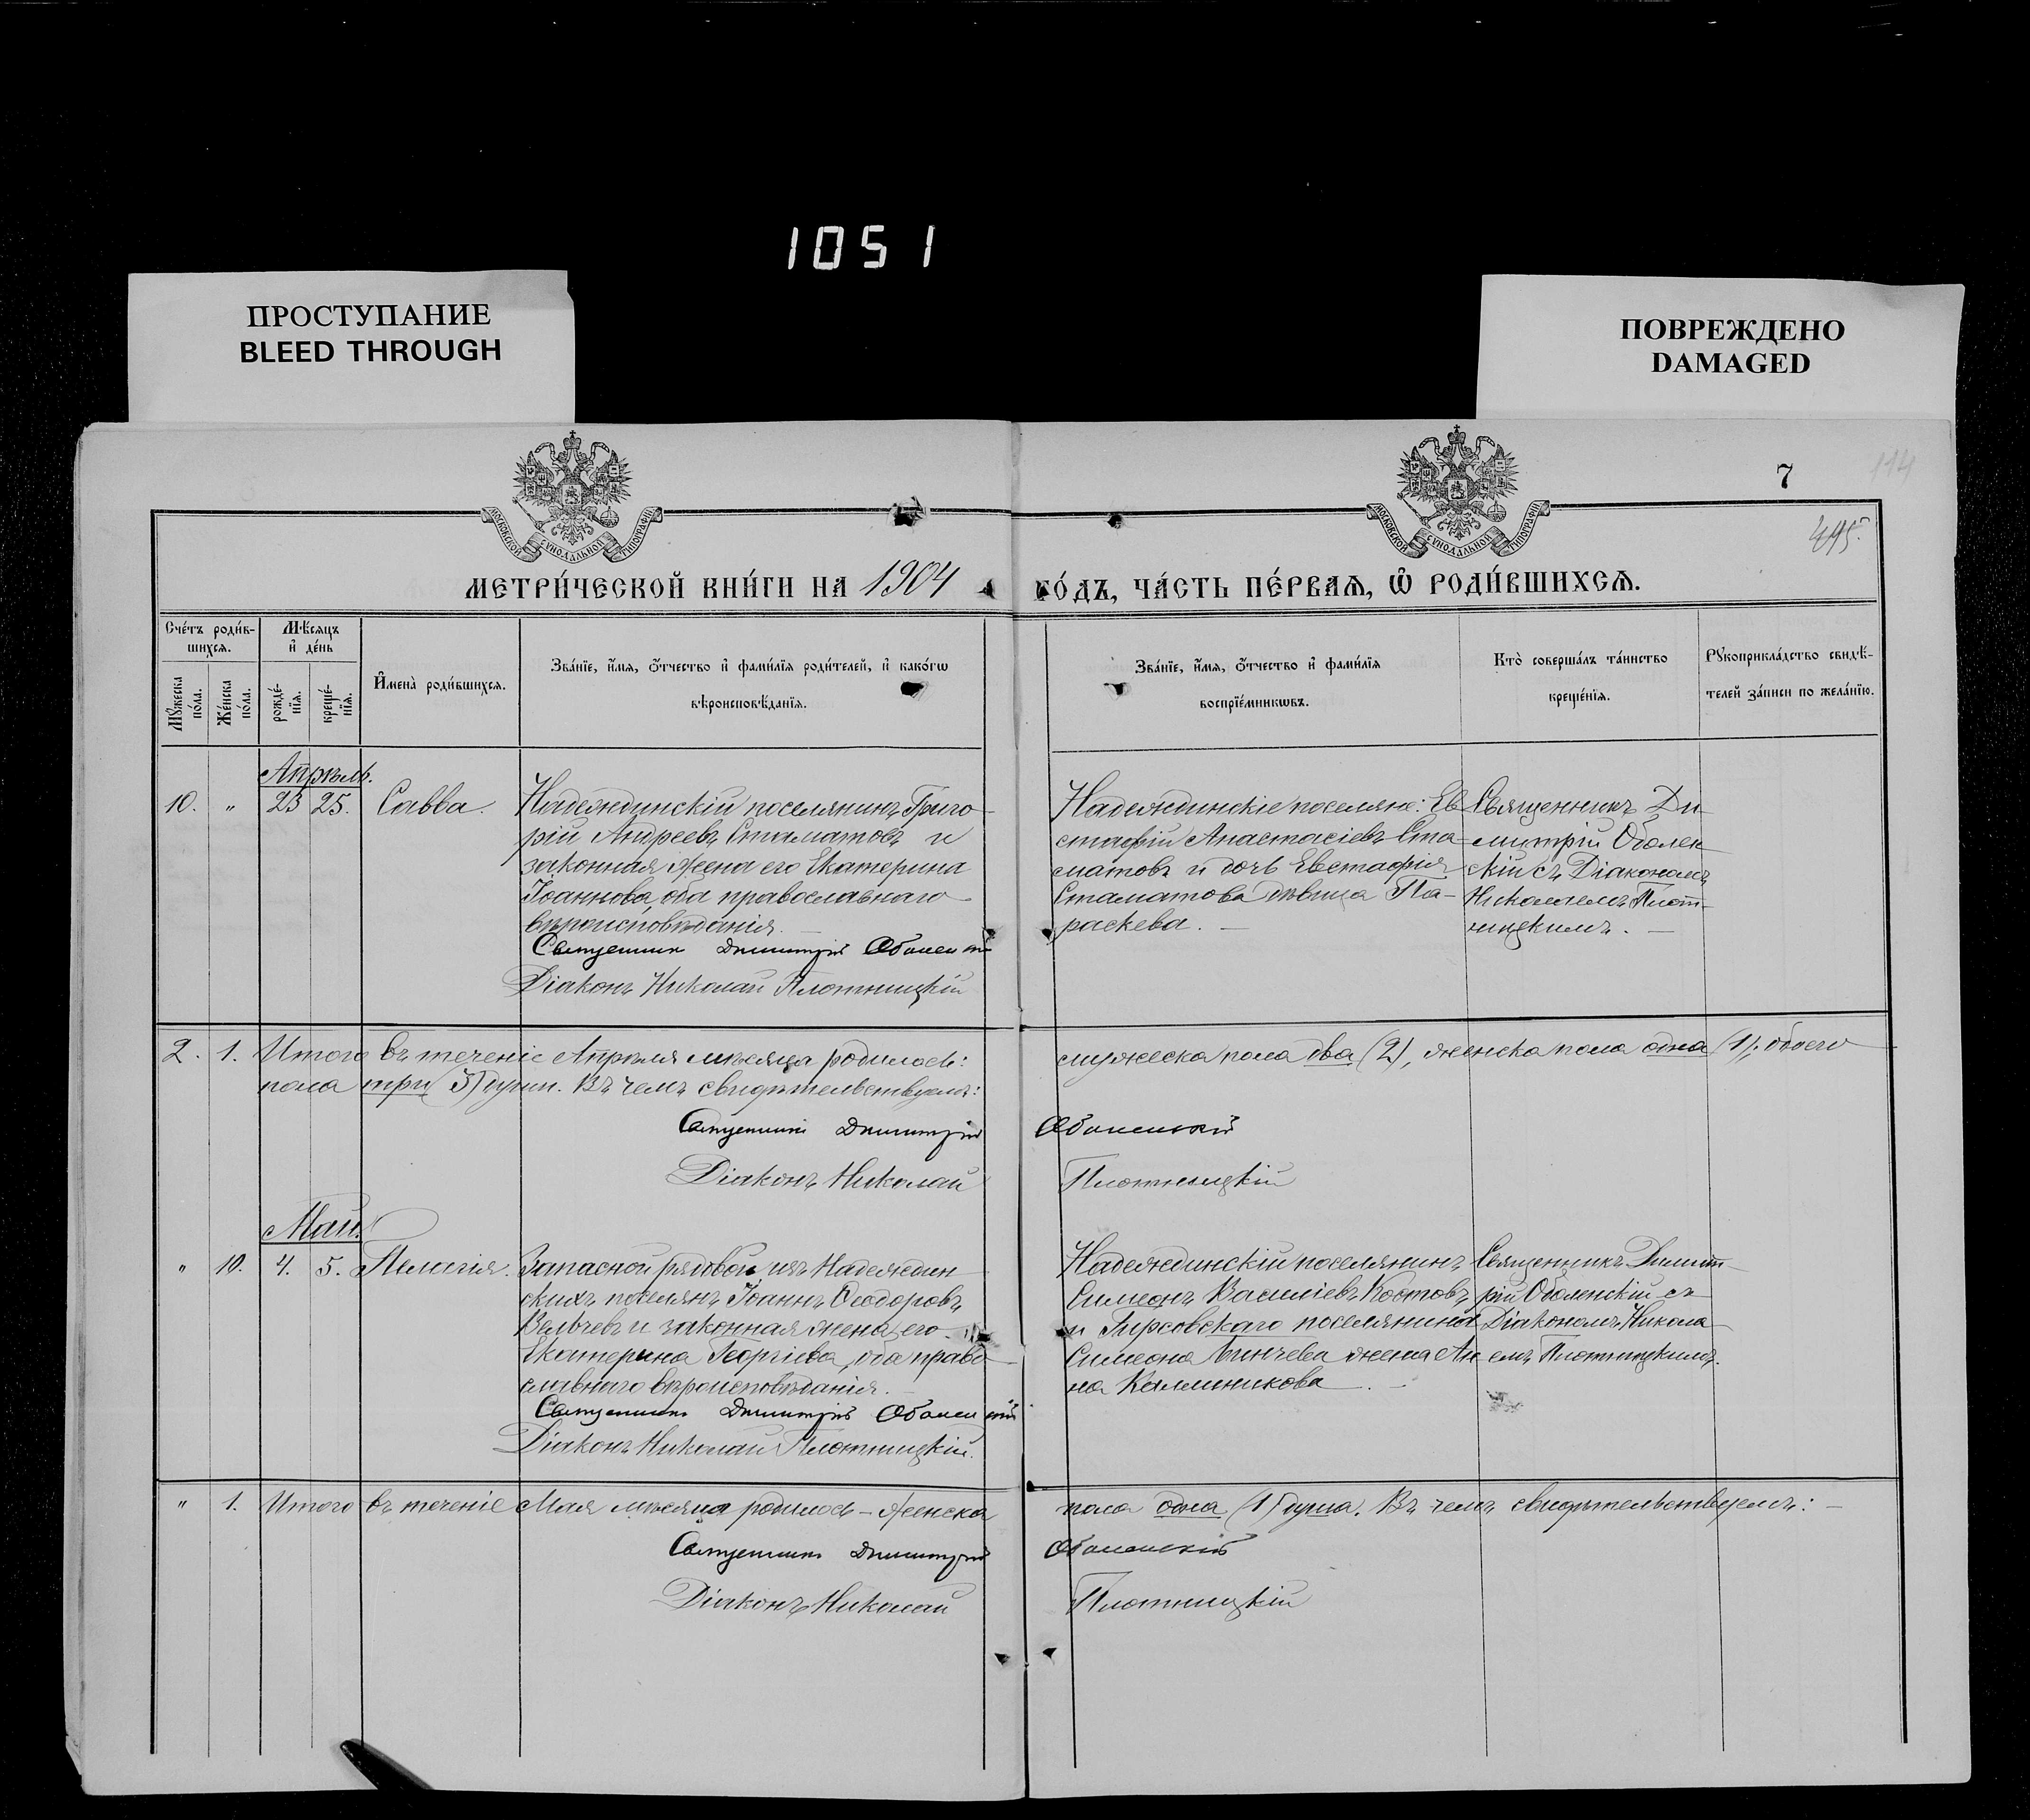 1051
ПРОСТУПАНИЕ
BLEED THROUGH
ПОВРЕЖДЕНО
DAMAGED
МОСКОВСКОЙ СУНОДАЛЬНОЙ ТИПОГРАФІИ
МОСКОВСКОЙ СУНОДАЛЬНОЙ ТИПОГРАФІИ
7
114
МЕТРИ́ЧЕСКОЙ КНИ́ГИ НА 1904
ГО́ДЪ, ЧА́СТЬ ПЕ́РВАѦ, Ѡ҆ РОДИ́ВШИХСѦ.
Сче́тъ роди́в-
шихсѧ.
Мꙋ́жеска по́ла.
Же́нска по́ла.
Мѣ́сѧцъ
и҆ де́нь
рожде́-
нїѧ.
креще́-
нїѧ.
И҆мена̀ роди́вшихсѧ.
Зва́нїе, и҆́мѧ, ѻ҆́тчество и҆ фами́лїѧ роди́телей, и҆ како́гѡ
вѣроисповѣ́данїѧ.
Зва́нїе, и҆́мѧ, ѻ҆́тчество и҆ фами́лїѧ
воспрїе́мникѡвъ.
Кто̀ соверша́лъ та́инство
креще́нїѧ.
Рꙋкоприкла́дство свидѣ́-
телей за́писи по жела́нїю.
Апрѣль.
10. " 23 25. Савва.
Надеждинскій поселянинъ Григо-
рій Андреевъ Стаматовъ и
законная жена его Екатерина
Іоаннова, оба православнаго
вѣроисповѣданія. —
Священникъ Димитрій Оболенскій
Діаконъ Николай Плотницкій
Надеждинскіе поселяне: Ев-
стафій Анастасіевъ Ста-
матовъ и дочь Евстафія
Стаматова дѣвица Па-
раскева. —
Священникъ Ди-
митрій Оболен-
скій съ Діакономъ
Николаемъ Плот-
ницкимъ. —
2. 1. Итого въ теченіе Апрѣля мѣсяца родилось: мужеска пола два (2), женска пола одна (1), обоего
пола три (3) души. Въ чемъ свидѣтельствуемъ:
Священникъ Димитрій Оболенскій
Діаконъ Николай Плотницкій
Май.
" 10. 4. 5. Пелагія.
Запасной рядовой изъ Надеждин-
скихъ поселянъ Іоаннъ Ѳеодоровъ
Вельчевъ и законная жена его
Екатерина Георгіева, оба право-
славнаго вѣроисповѣданія. —
Священникъ Димитрій Оболенскій
Діаконъ Николай Плотницкій.
Надеждинскій поселянинъ
Симеонъ Василіевъ Костовъ
и Гирсовскаго поселянина
Симеона жена Ан-
на Каллиникова. —
Священникъ Димит-
рій Оболенскій съ
Діакономъ Никола-
емъ Плотницкимъ.
" 1. Итого въ теченіе Мая мѣсяца родилось — женска пола одна (1) душа. Въ чемъ свидѣтельствуемъ: —
Священникъ Димитрій Оболенскій
Діаконъ Николай Плотницкій